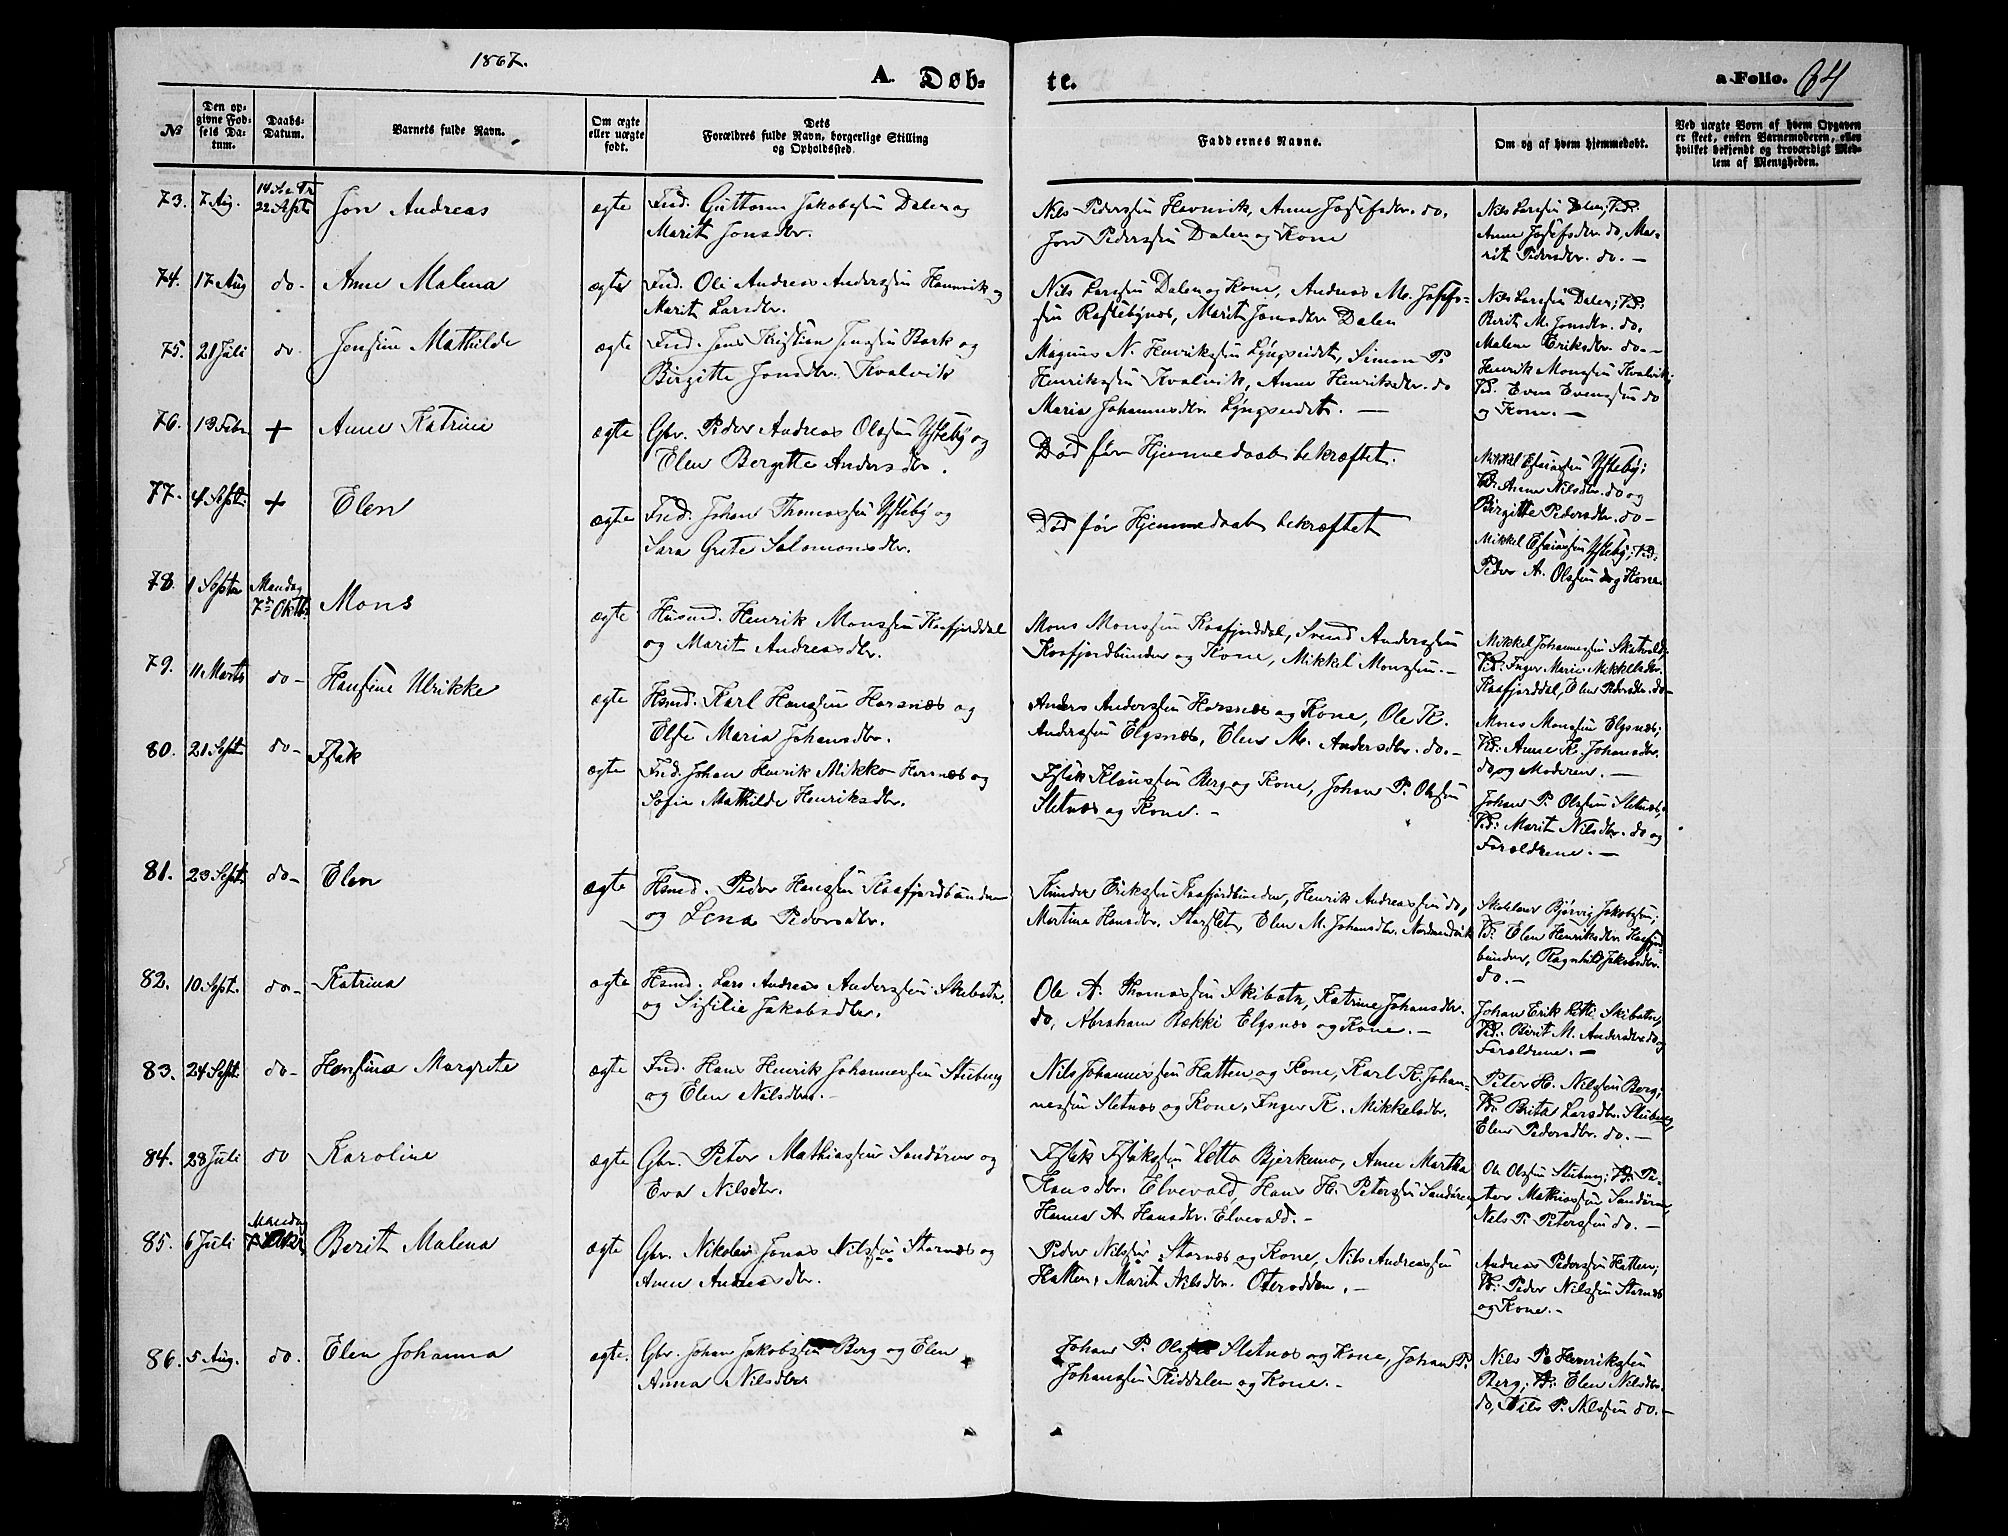 1867.
A. Døb-
te.
a Folio. 64
No
Den opgivne Fødsels Datum.
Daabs-Datum.
Barnets fulde Navn.
Om ægte eller uægte født.
Dets Forældres fulde Navn, borgerlige Stilling og Opholdssted.
Faddernes Navne.
Om og af hvem hjemmedøbt.
Ved uægte Børn af hvem Opgaven er skeet, enten Barnemoderen, eller hvilket bekjendt og troværdigt Medlem af Menigheden.
73. 7 Aug. 14 S. e. Tr. 22 Septr Jon Andreas ægte Ind. Guttorm Jakobssen Dalen og
Marit Jonsdtr.
Nils Pederssen Havnvik, Anne Josefsdtr. do.
Jon Pederssen Dalen og Kone
Nils Larssen Dalen; Td:
Anne Josefsdtr do, Ma-
rit Pedersdtr. do. -
74. 17 Aug do. Anne Malena ægte Ind. Ole Andreas Anderssen Havnvik og
Marit Larsdtr.
Nils Larssen Dalen og Kone, Andreas M. Josefs-
sen Rastebynes, Marit Jonsdtr Dalen
Nils Larssen Dalen; Td:
Berit M. Jonsdtr. do.
Malene Eriksdtr. do. -
75. 21 Juli do. Jensine Mathilde ægte Ind. Jens Kristian Jenssen Bark og
Birgitte Jonsdtr. Kvalvik
Magnus N. Henrikssen Lyngseidet, Simon P.
Henrikssen Kvalvik, Anne Henriksdtr. do
Maria Johannesdtr Lyngseidet. -
Henrik Monssen Kvalvik;
Td: Even Evenssen do
og Kone. -
76. 13 Febr + Anne Katrine ægte Gbr. Peder Andreas Olssen Ysteby og
Elen Bergitte Andersdtr.
Død før Hjemmedaaben bekræftet.
Mikkel Esaiassen Ysteby;
Td: Anne Nilsdtr. do og
Birgitte Pedersdtr. do -
77. 4 Septr. + Elen ægte Ind. Johan Thomassen Ysteby og
Sara Grete Salomonsdtr.
Død før Hjemmedaaben bekræftet
Mikkel Esaiassen Ysteby; Td:
Peder A. Olssen do og Kone
78. 1 Septbr Mandag 7de Oktbr. Mons ægte Husmd. Henrik Monssen Kaafjorddal
og Marit Andreasdtr.
Mons Monssen Kaafjorddal, Svend Anderssen
Kaafjordbunden og Kone, Mikkel Monssen. -
Mikkel Johannessen Skatvold;
Td: Inger Marie Mikkelsdtr.
Kaafjorddal, Elen Pedersdtr. do -
79. 11 Marts do - Hansine Ulrikke ægte Hsmd. Karl Hanssen Horsnæs og
Else Maria Johansdtr.
Anders Anderssen Horsnæs og Kone, Ole K.
Anderssen Elgsnæs, Elen M. Andersdtr. do. -
Mons Monssen Elgsnæs;
Td: Anne K. Johansdtr.
do og Moderen. -
80. 21 Sept. do - Isak ægte Ind. Johan Henrik Mikko Horsnæs og
Sofie Mathilde Henriksdtr.
Isak Klaussen Berg og Kone, Johan P. Olssen
Sletnæs og Kone. -
Johan P. Olssen Sletnæs;
Td: Marit Nilsdtr. do og
Forældrene. -
81. 23 Sept. do - Elen ægte Hsmd. Peder Hanssen Kaafjordbunden
og Lena Pedersdtr.
Gunder Erikssen Kaafjordbunden, Henrik Andreassen do,
Martina Hansdtr. Storslet, Elen M. Johansdtr. Nordmandvik
Skoleler Bjørvig Jakobssen;
Td: Elen Henriksdtr. Kaafjord-
bunden, Ragnhild Jakobsdtr.
do. -
82. 10 Sept. do - Katrina ægte Hsmd. Lars Andreas Anderssen Skibotn.
og Sifilie Jakobsdtr.
Ole A. Thomassen Skibotn, Katrine Johansdtr.
do, Abraham Bækki Elgsnæs og Kone. -
Johan Erik Letti Skibotn,
Td: Berit M. Andersdtr do og
Forældrene. -
83. 24 Sept. do - Hansina Margrete ægte Ind. Hans Henrik Johannessen Stubeng
og Elen Nilsdtr. -
Nils Johannessen Hatten og Kone, Karl K. Johan-
nessen Sletnæs og Kone, Inger K. Mikkelsdtr.
Peter H. Nilssen Berg;
Td: Brita Larsdtr. Stubeng,
Elen Pedersdtr. do. -
84. 28 Juli do Karoline ægte Gbr. Peter Mathiassen Sandøren og
Eva Nilsdtr.
Isak Isakssen Letto Bjerkemo, Anne Martha
Hansdtr. Elvevold, Hans H. Peterssen Sandøren,
Hanna A. Hansdtr. Elvevold. -
Ole Olssen Stubeng; Td: Pe-
ter Mathiassen Sandøren,
Nils P. Peterssen do. -
85. 6 Juli Mandag 7 Okt Berit Malena ægte Gbr. Nikolai Jonas Nilssen Stornæs og
Anne Andreasdtr.
Peder Nilssen Stornæs og Kone, Nils Andreassen
Hatten, Marit Nilsdtr. Oteroddem. -
Andreas Pederssen Hatten;
Td: Peder Nilssen Stornæs
og Kone. -
86. 5 Aug. do. Elen Johanna ægte. Gbr. Johan Jakobssen Berg og Elen
Anna Nilsdtr.
Johan P. Olssen Sletnæs og Kone, Johan P.
Johanssen Kiddalen og Kone. -
Nils P. Henrikssen
Berg; Td: Elen Nilsdtr.
do, Nils P. Nilssen do. -